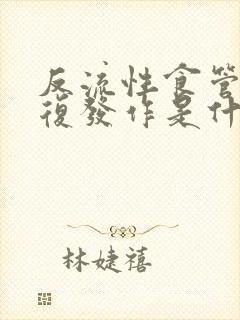 反流性食管
復發作是什
林婕禧